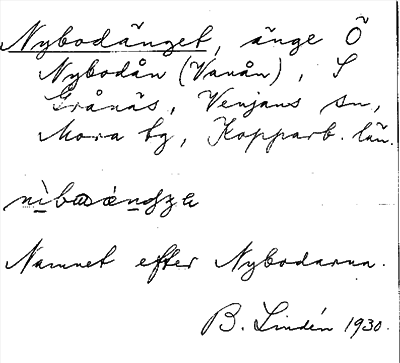 Nybodänget, änge Ö
Nybodån (Vanån), S
Gränäs, Venjans sn,
Mora tg, Kopparb. län.
Namnet efter Nybodarna.
B. Lindén 1930.